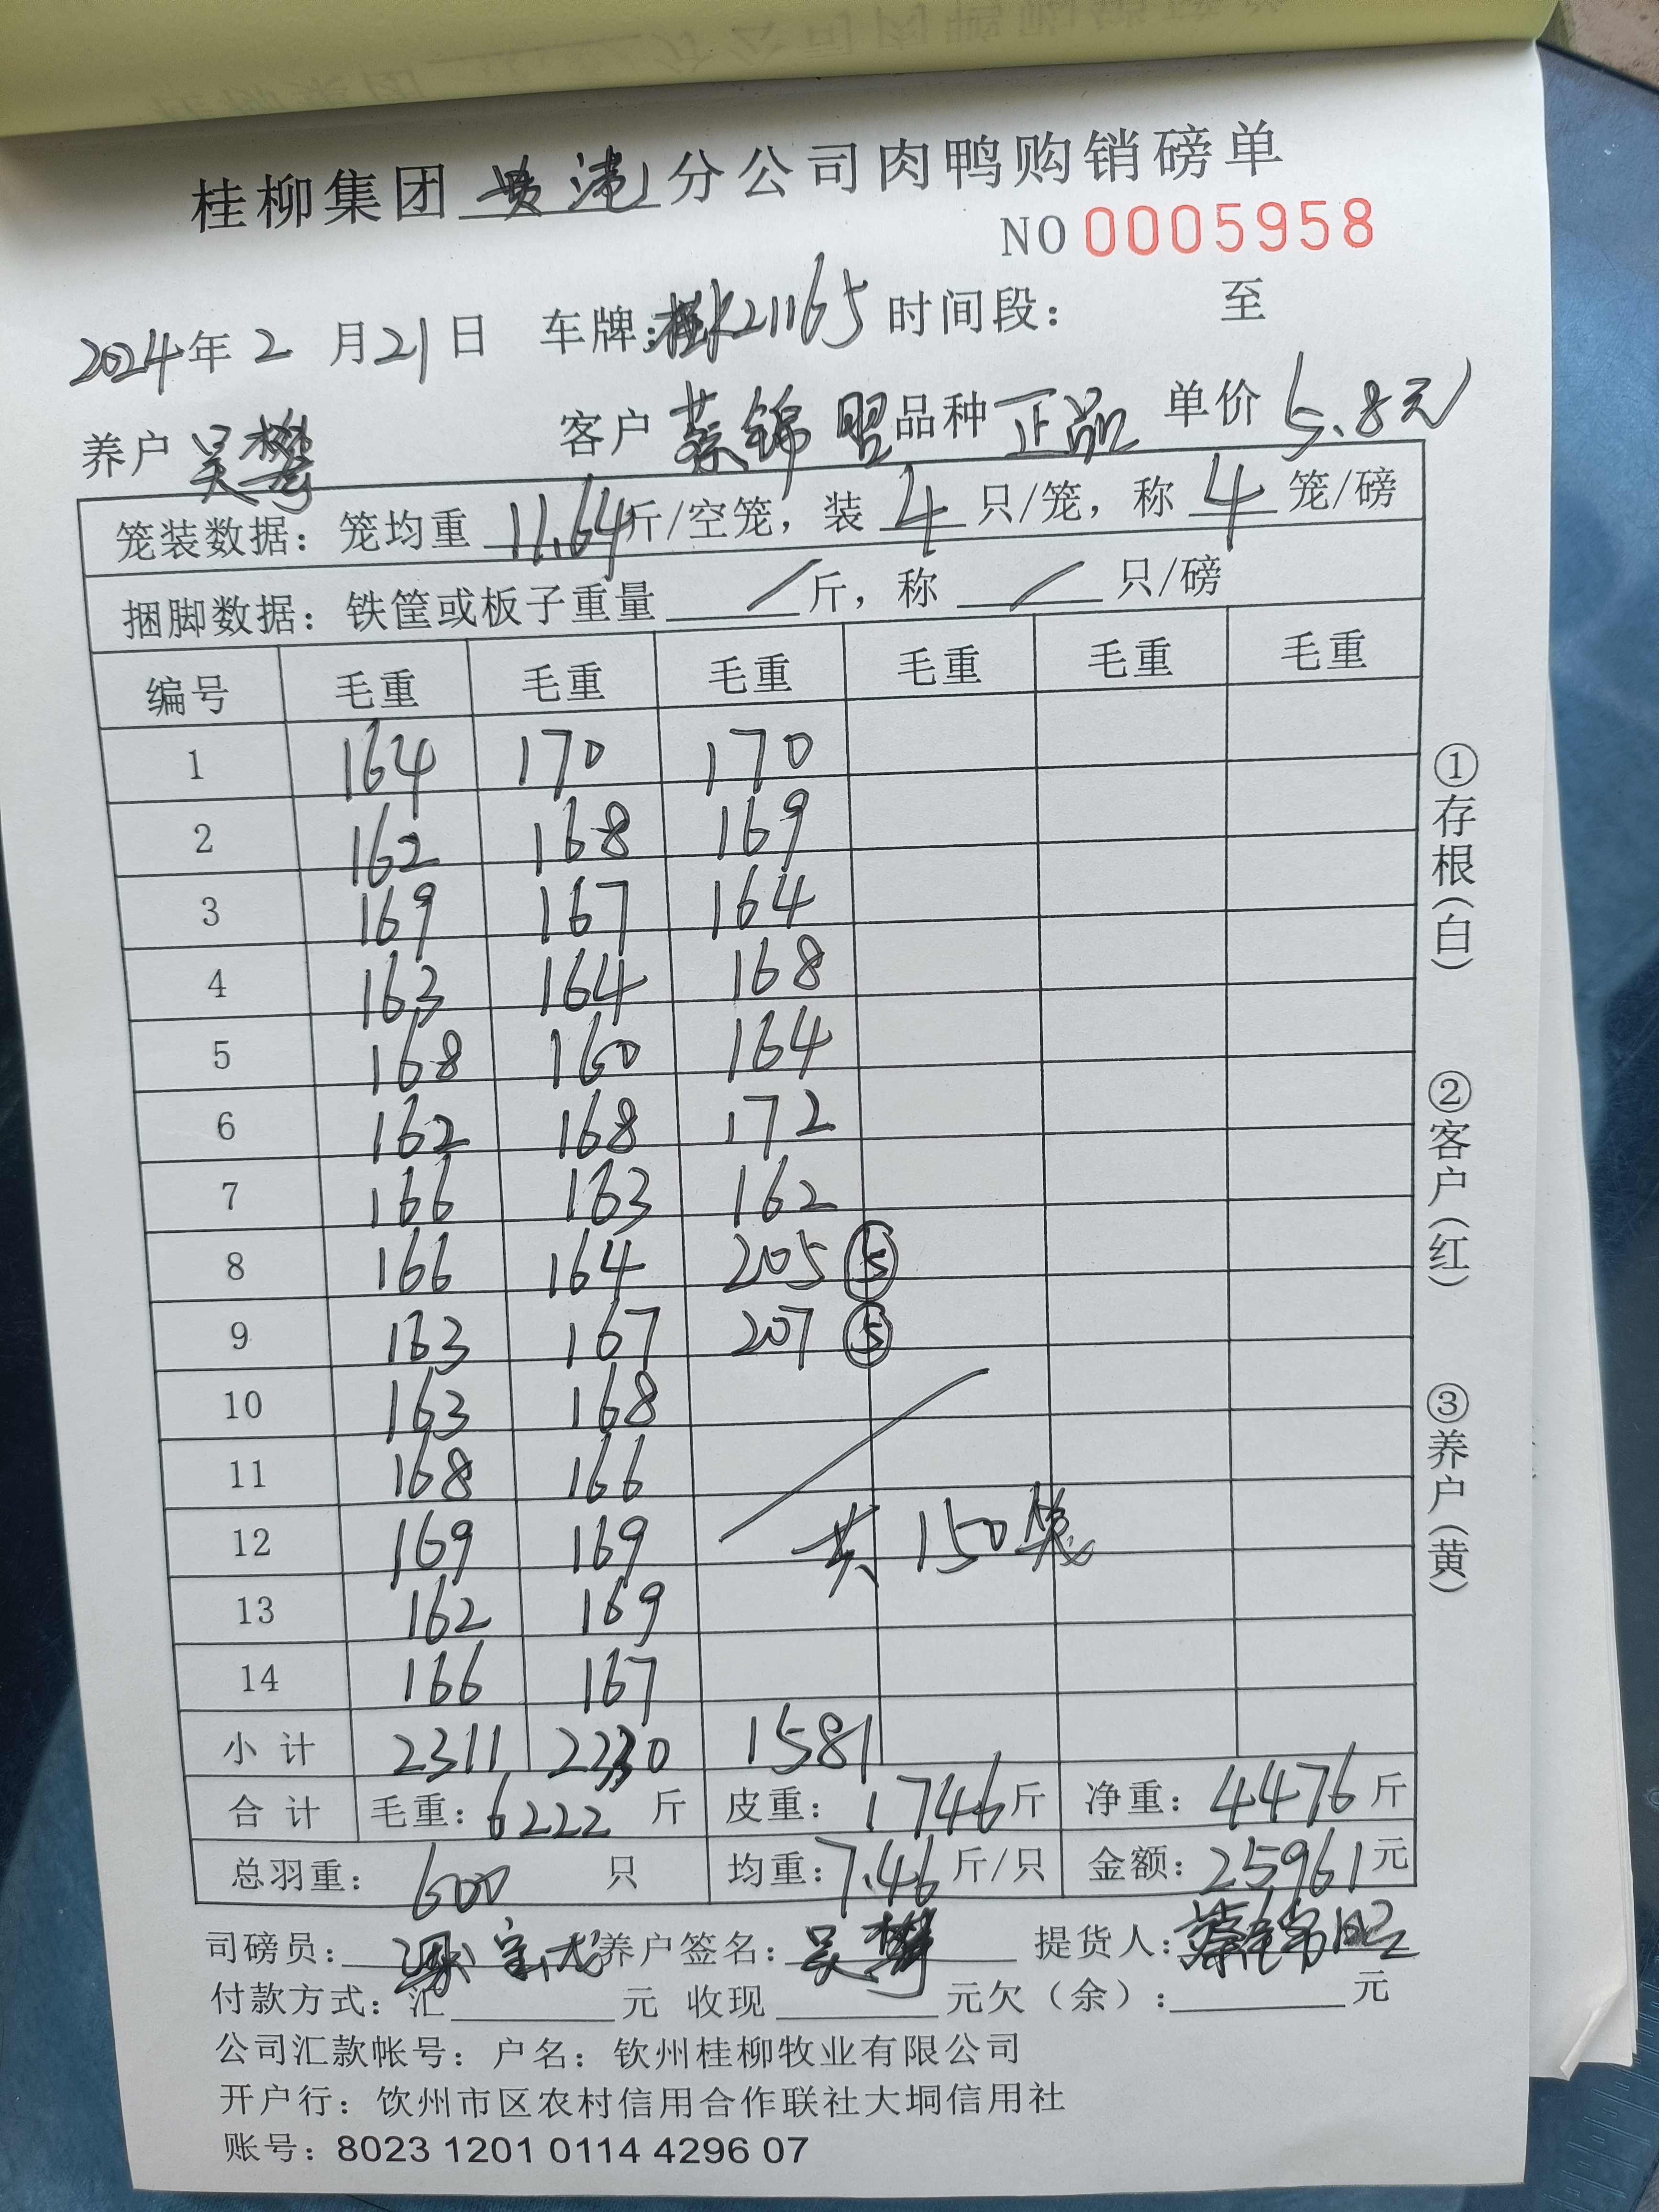 桂柳集团贵港分公司肉鸭购销磅单
NO 0005958
2024年2月21日 车牌:桂K21165 时间段: 至
养户 吴樊 客户 蔡锦盟 品种 正品 单价 5.8元
笼装数据: 笼均重 11.64斤/空笼, 装 4 只/笼, 称 4 笼/磅
捆脚数据: 铁筐或板子重量 / 斤, 称 / 只/磅
编号 毛重 毛重 毛重 毛重 毛重 毛重
1 164 170 170
2 162 168 169
3 169 167 164
4 163 164 168
5 168 160 164
6 162 168 172
7 166 163 162
8 166 164 205 ⑤
9 163 167 207 ⑤
10 163 168
11 168 166
12 169 169 共150笼
13 162 169
14 166 167
小计 2311 2330 1581
合计 毛重: 6222 斤 皮重: 1746斤 净重: 4476斤
总羽重: 600 只 均重: 7.46 斤/只 金额: 25961元
司磅员: 养户签名: 吴樊 提货人: 蔡锦盟
付款方式: 汇 元 收现 元欠(余): 元
公司汇款帐号: 户名: 钦州桂柳牧业有限公司
开户行: 钦州市区农村信用合作联社大垌信用社
账号: 8023 1201 0114 4296 07
①存根(白)
②客户(红)
③养户(黄)